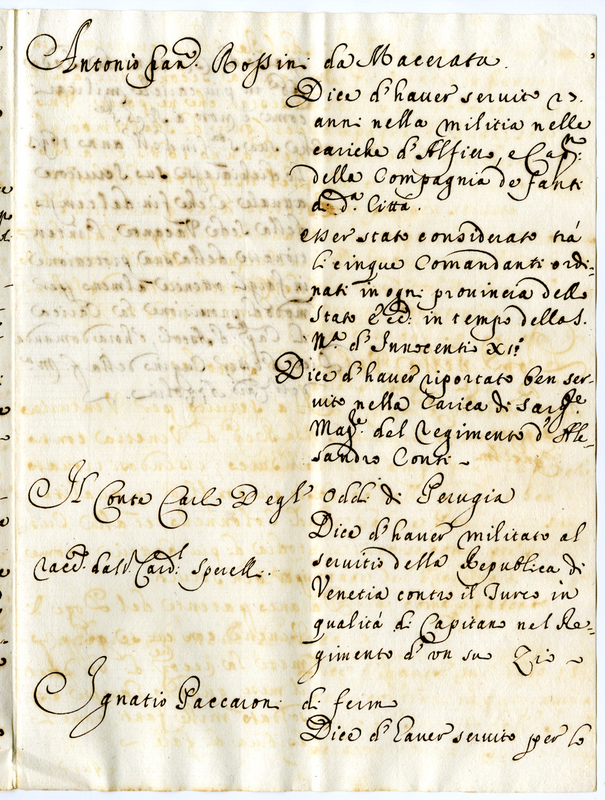 Antonio Fran.º Rossini da Macerata.
Dice d'haver servito 27.
anni nella militia nelle
cariche d'Alfiero, e Cap.nº
della Compagnia de fanti
di d.ª Città.
Esser stato considerato trà
li cinque Comandanti ordi-
nati in ogni provincia dello
stato Ecc.º in tempo della S.
M.ª d'Innocentio XI.º
Dice d'haver riportato ben ser-
vito nella Carica di Sarg.te
Mag.re del Regimento d'Ale-
sandro Conti -
Il Conte Carlo Degl' Oddi di Perugia
Dice d'haver militato al
servitio della Republica di
racc.º dal S.r Card.l Sperelli.
Venetia contro il Turco in
qualità di Capitano nel Re-
gimento d'un suo Zio -
Ignatio Paccaroni di fermo
Dice d'haver servito per lo